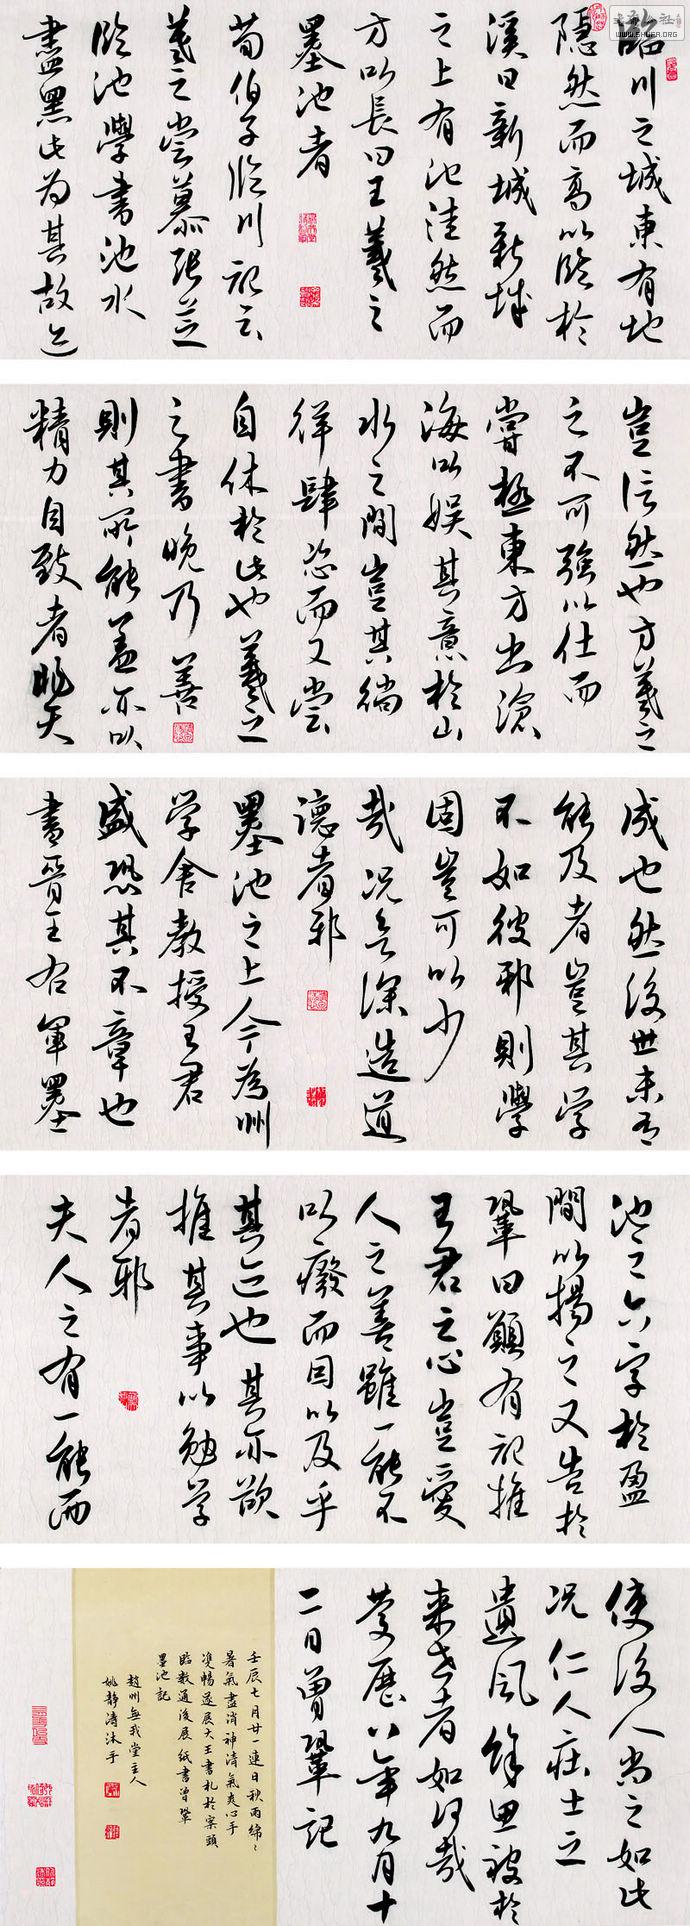 臨川之城東有地
隱然而高以臨於
溪曰新城新城
之上有池洼然而
方以長曰王羲之
墨池者
荀伯子臨川記云
羲之嘗慕張芝
臨池學書池水
盡黑此為其故迹
豈信然也方羲之
之不可強以仕而
嘗極東方出滄
海以娛其意於山
水之間豈其徜
徉肆恣而又嘗
自休於此也羲之
之書晚乃善
則其所能蓋亦以
精力自致者非天
成也然後世未有
能及者豈其学
不如彼邪則學
固豈可以少
哉況欲深造道
德者邪
墨池之上今為州
学舍教授王君
盛恐其不章也
書晉王右軍墨
池之六字於盈
間以揭之又告於
鞏曰願有記推
王君之心豈愛
人之善雖一能不
以癈而因以及乎
其迹也其亦欲
推其事以勉学
者邪
夫人之有一能而
使後人尚之如此
况仁人莊士之
遺風餘思被於
来世者如何哉
慶歷八年九月十
二日曾鞏記
壬辰七月廿一連日秋雨綿々
暑氣盡消神清氣爽心手
雙暢遂展大王書札於案頭
臨數通後展紙書曾鞏
墨池記
趙州無我堂主人
姚静濤沐手
WWW.SHUFA.ORG